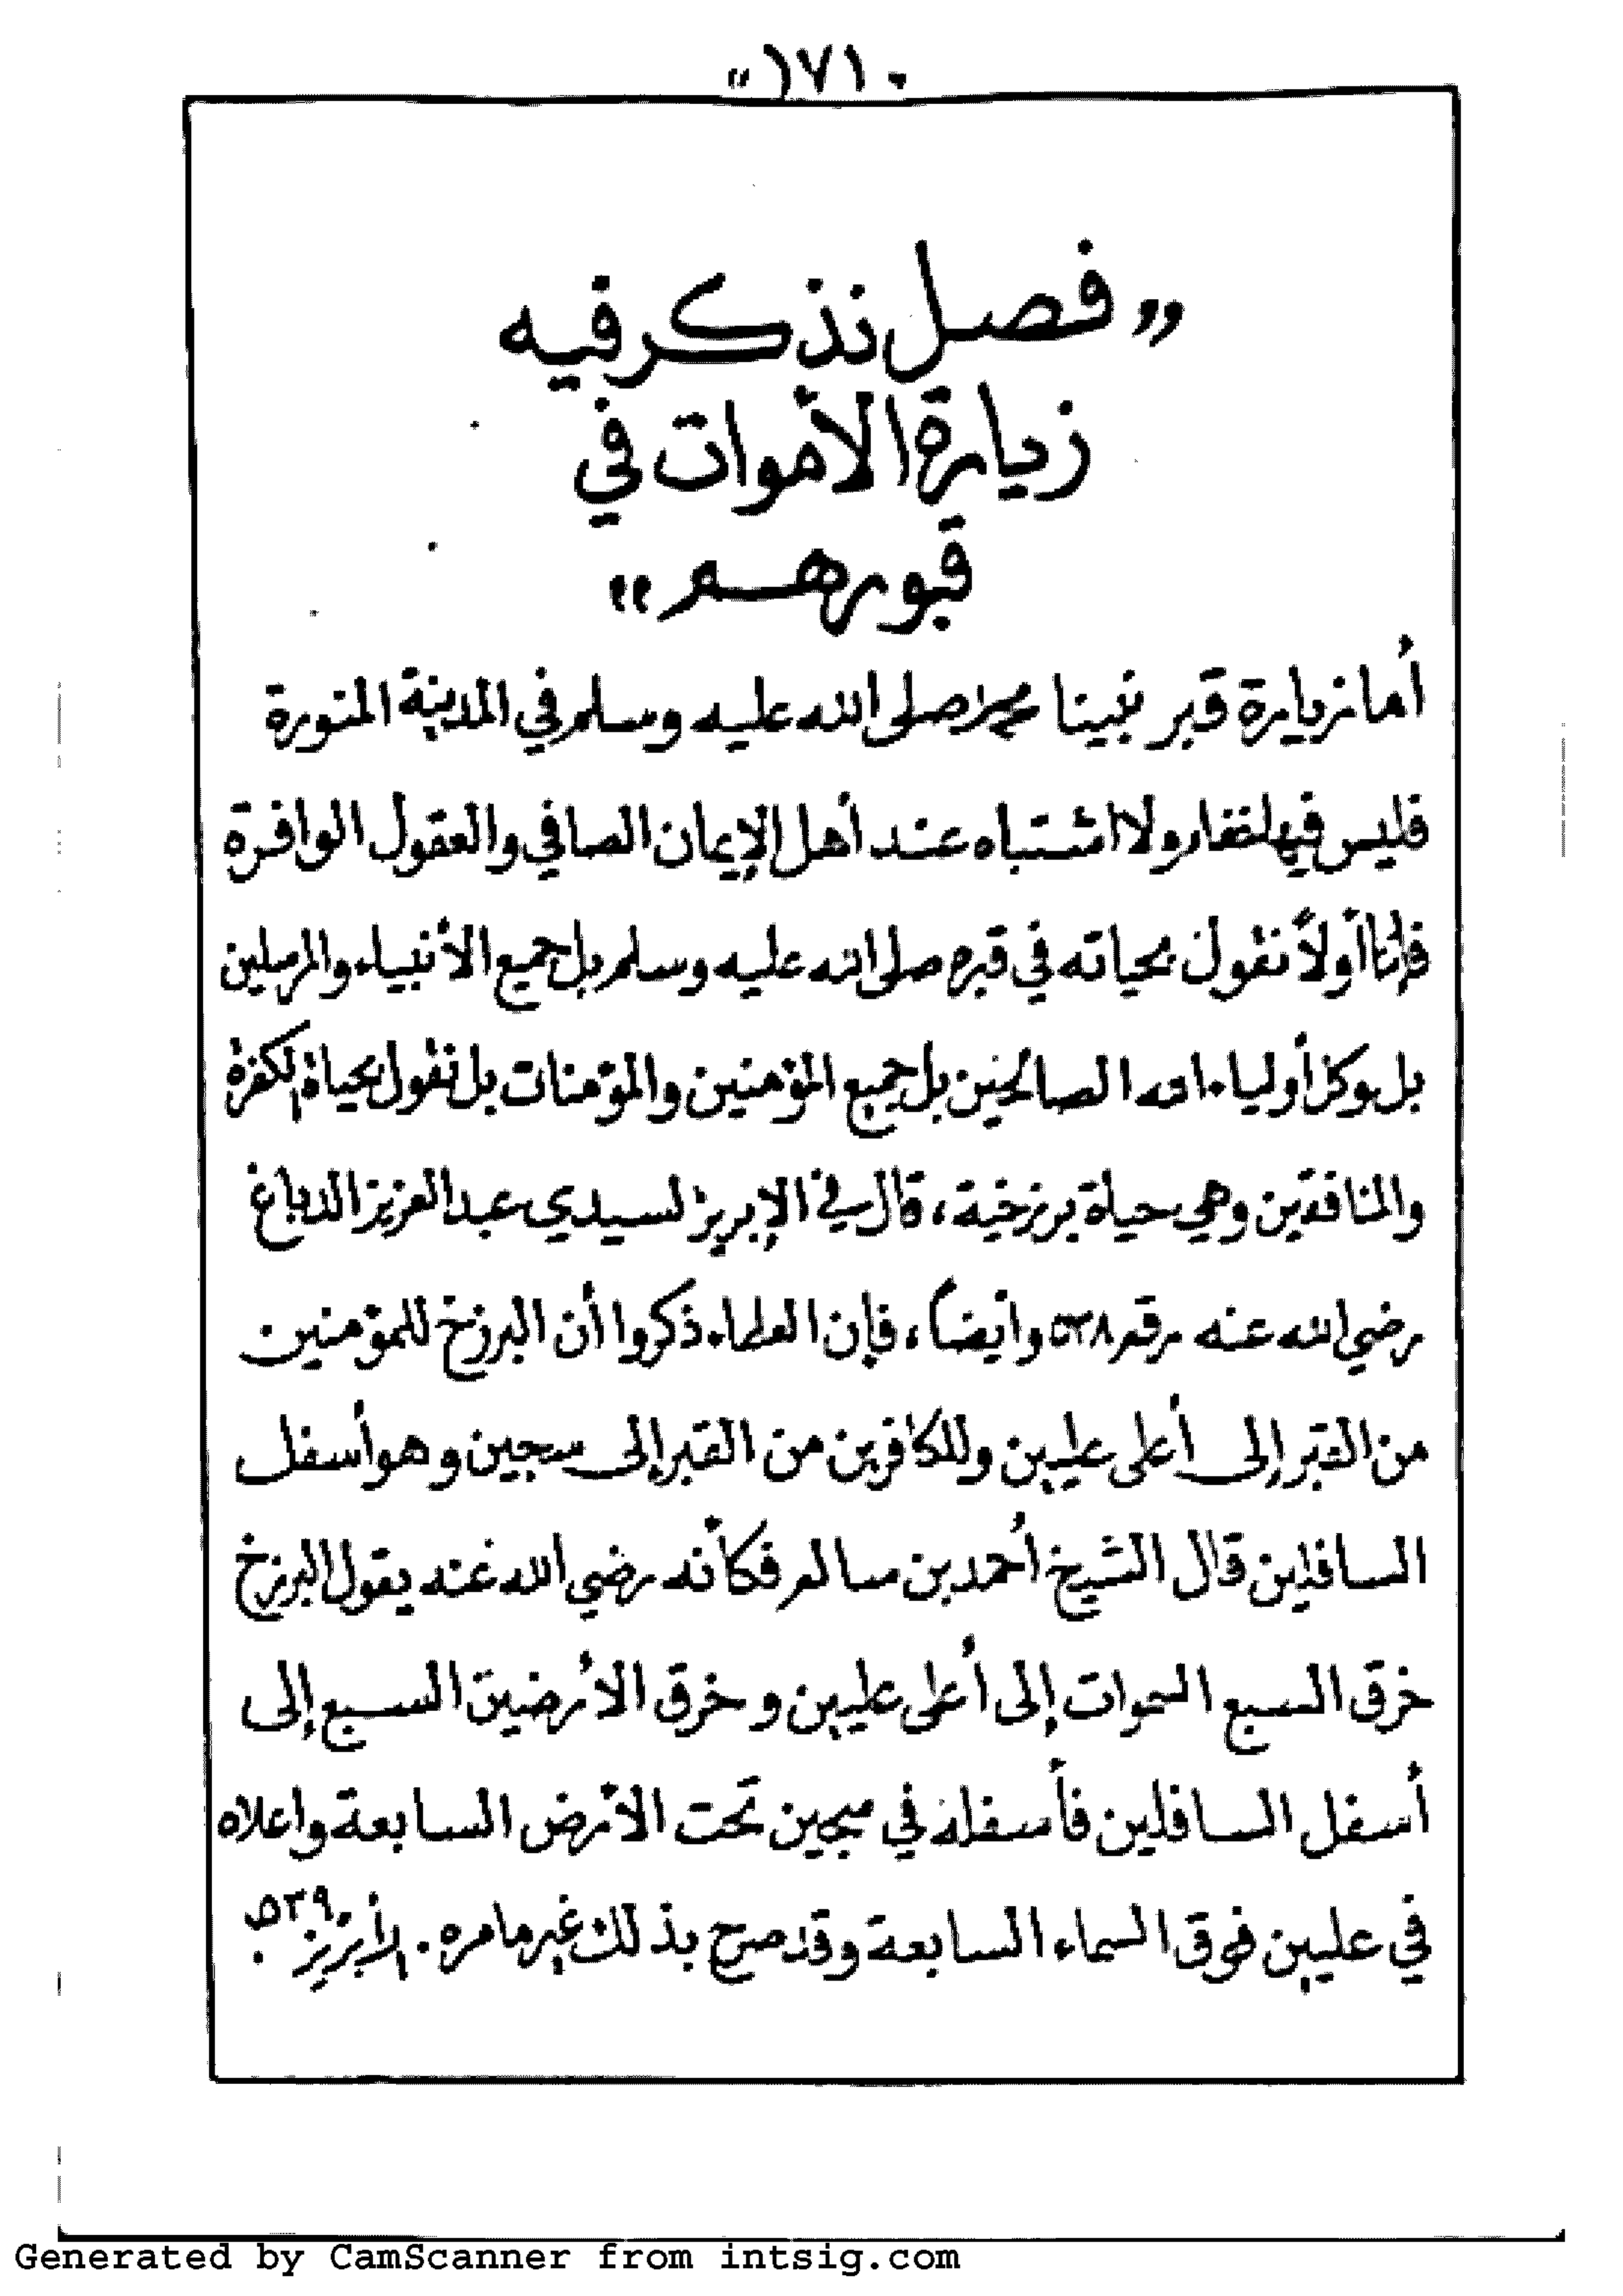 (١٧١)
” فصل نذكر فيه
زيارة الأموات في
قبورهم “
أما زيارة قبر نبينا محمد صلى الله عليه وسلم في المدينة المنورة
فليس فيها غفار ولا اشتباه عند أهل الإيمان الصافي والعقول الوافرة
فإننا أولاً نقول بحياته في قبره صلى الله عليه وسلم بل جميع الأنبياء والمرسلين
بل وكل أولياء الله الصالحين بل جميع المؤمنين والمؤمنات بل نقول بحياة الكفرة
والمنافقين وهي حياة برزخية، قال في الإبريز لسيدي عبد العزيز الدباغ
رضي الله عنه رقم ٥٣٨ وأيضاً، فإن العلماء ذكروا أن البرزخ للمؤمنين
من القبر إلى أعلى عليين وللكافرين من القبر إلى سجين وهو أسفل
السافلين قال الشيخ أحمد بن سالم فكأنه رضي الله عنه يقول البرزخ
خرق السبع السموات إلى أعلى عليين وخرق الأرضين السبع إلى
أسفل السافلين فأسفله في سجين تحت الأرض السابعة واعلاه
في عليين فوق السماء السابعة وقد صرح بذلك غير ما مره. الأبريز ٥٣٩.
Generated by CamScanner from intsig.com